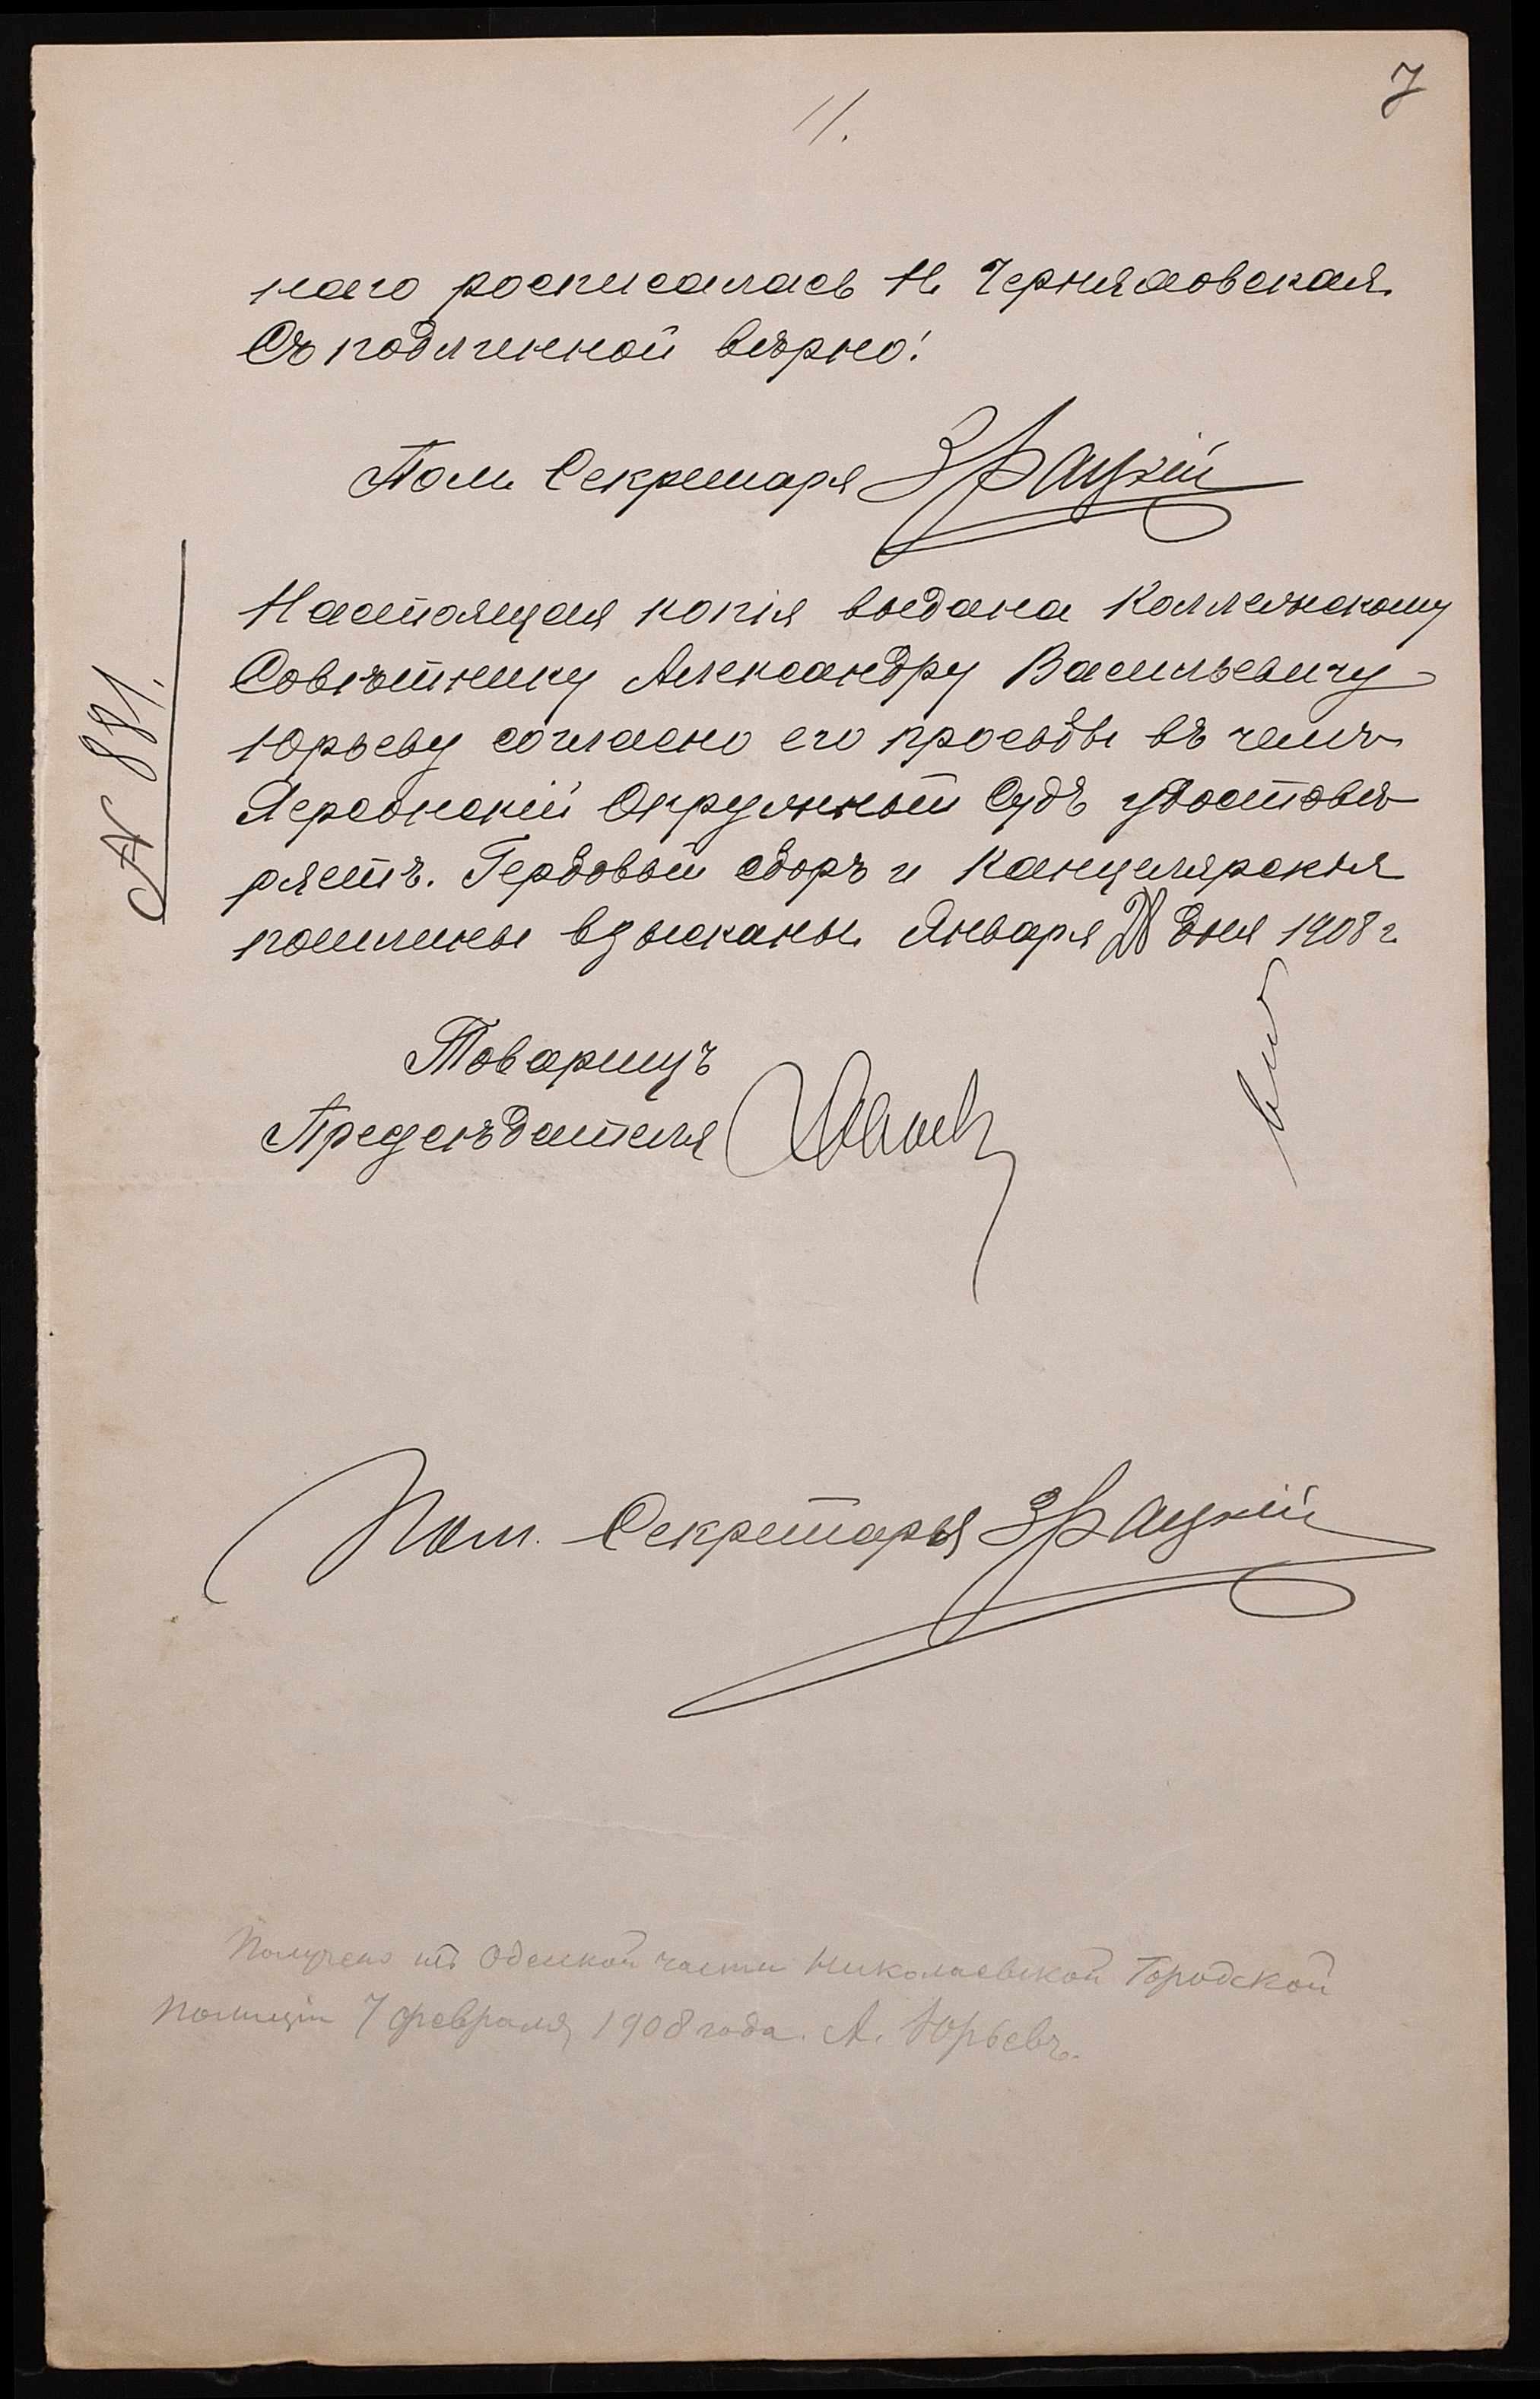 7
11.
наго росписалась Н. Черняховская.
Съ подлинной вѣрно!
Пом. Секретаря
№ 881.
Настоящая копія выдана Коллежскому
Совѣтнику Александру Васильевичу
Юрьеву согласно его просьбы въ чемъ
Херсонскій Окружный Судъ удостовѣ-
ряетъ. Гербовый сборъ и канцелярскія
пошлины взысканы. Января 28 дня 1908 г.
Товарищъ
Предсѣдателя
Пом. Секретаря
Получено изъ Одесской части Николаевской Городской
Полиціи 7 февраля 1908 года. А. Юрьевъ.